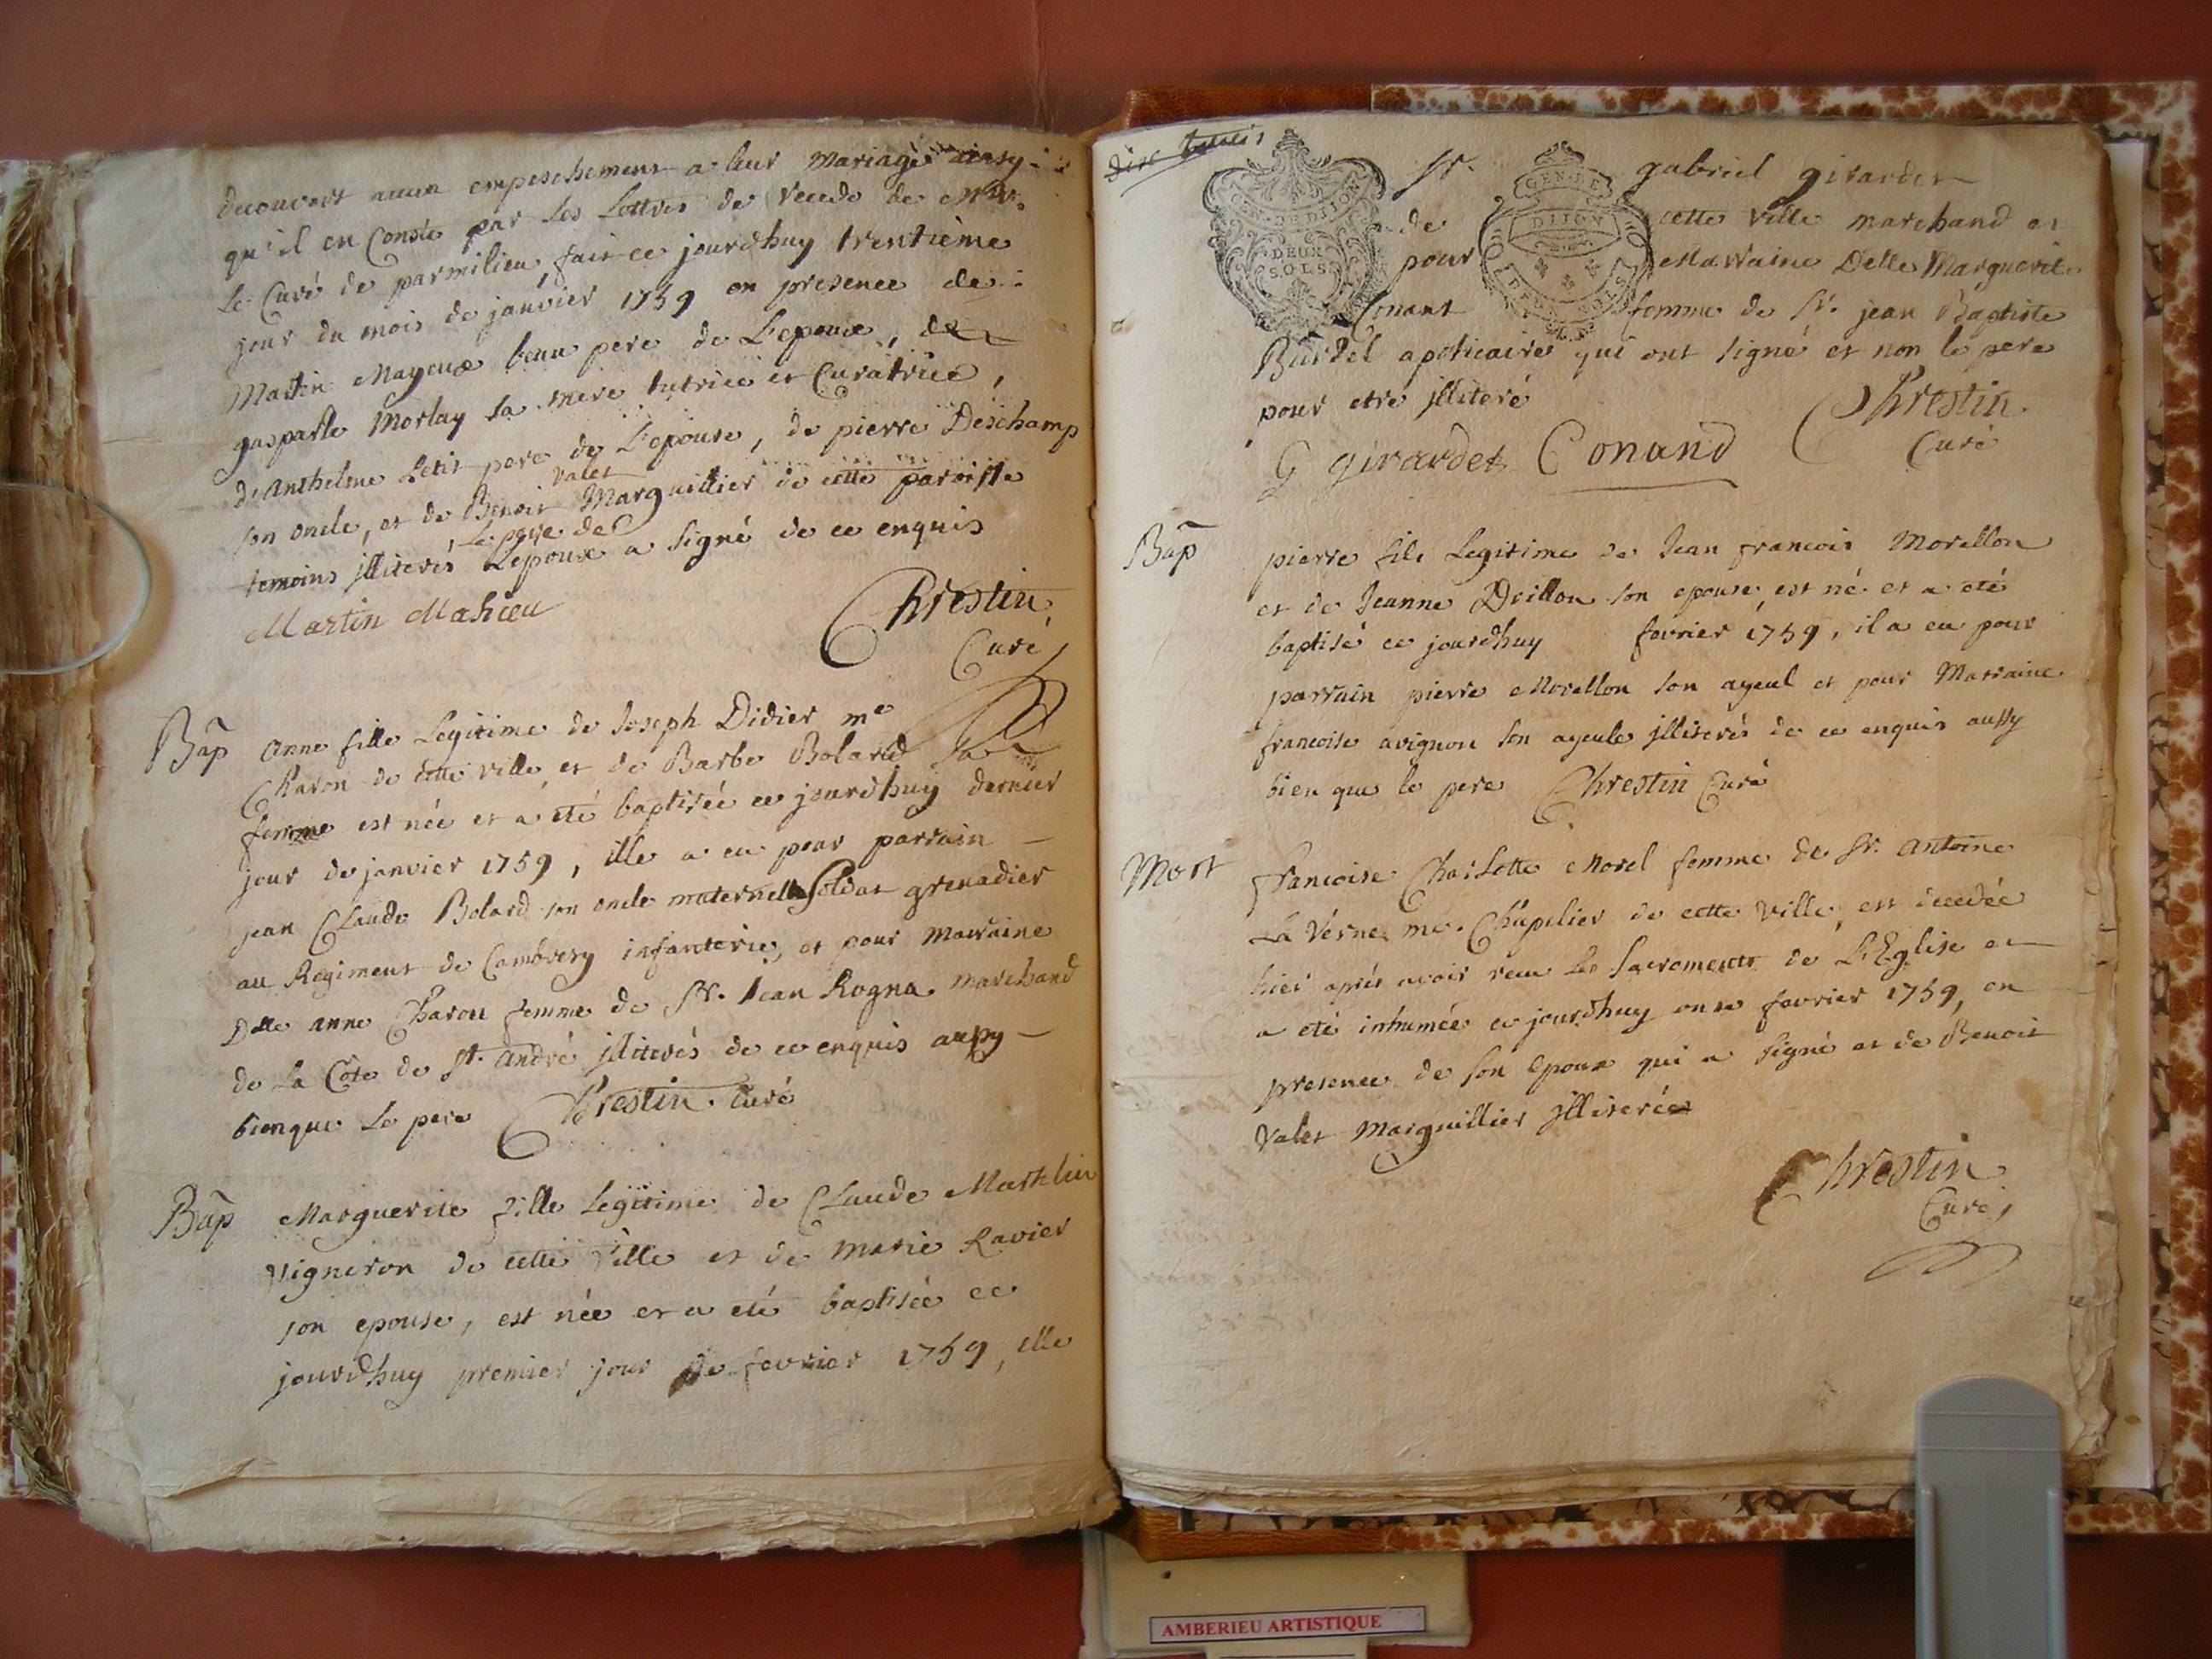 decouvert aucun empeschement a leur mariage ainsy
qu'il en Conste par les Lettres de recedo de Mr.
Le Curé de parmilieu, fait ce jourdhuy trentième
jour du mois de janvier 1759 en presence de
Martin Mayeux beau pere de L'epoux, de
gasparde Morlay sa mere tutrice et Curatrice,
d'Anthelme Letit pere de L'epouse, de pierre Deschamp
valet
son oncle, et de Benoit Marguillier de cette paroisse
Le pere de
temoins jlliterés L'epoux a signé de ce enquis
Martin Mahieu
Chrestin
Curé
Bap Anne fille Legitime de Joseph Didier me
Charon de cette ville, et de Barbe Bolard sa
femme est née et a été baptisée ce jourdhuy dernier
jour de janvier 1759, elle a eu pour parrain
jean Claude Bolard son oncle maternelle Soldat grenadier
au Regiment de Cambresy infanterie, et pour marraine
Delle anne Charon femme de Sr. Jean Rogna marchand
de La Côte de St. André jlliterés de ce enquis aussy
bien que Le pere Chrestin Curé
Bap Marguerite fille Legitime de Claude Martelin
Vigneron de cette Ville et de marie Ravier
son epouse, est née et a eté baptisée ce
jourdhuy premier jour de fevrier 1759, elle
GEN. DE DIJON
DEUX
SOLS
GEN. DE
DIJON
DEUX SOLS
Sr. gabriel girardet
de cette ville marchand et
pour Marraine Delle Marguerite
Conant femme de Sr. jean Baptiste
Burdel apoticaire qui ont signé et non le pere
pour etre jlliteré
Chrestin
Curé
G girardet Conand
Bap pierre fils Legitime de Jean francois Morellon
et de Jeanne Drillon son epouse, est né et a eté
baptisé ce jourdhuy fevrier 1759, il a eu pour
parrain pierre Morellon son ayeul et pour Marraine
francoise avignon son ayeule jlliterés de ce enquis aussy
bien que le pere Chrestin Curé
Mort francoise Charlotte Morel femme de Sr. Antoine
La Verne me. Chapelier de cette Ville, est decedée
hier aprés avoir recu les Sacrements de L'Eglise et
a eté inhumée ce jourdhuy onze fevrier 1759, en
presence de son epoux qui a signé et de Benoit
Valet Marguillier jlliterée
Chrestin
Curé
AMBERIEU ARTISTIQUE